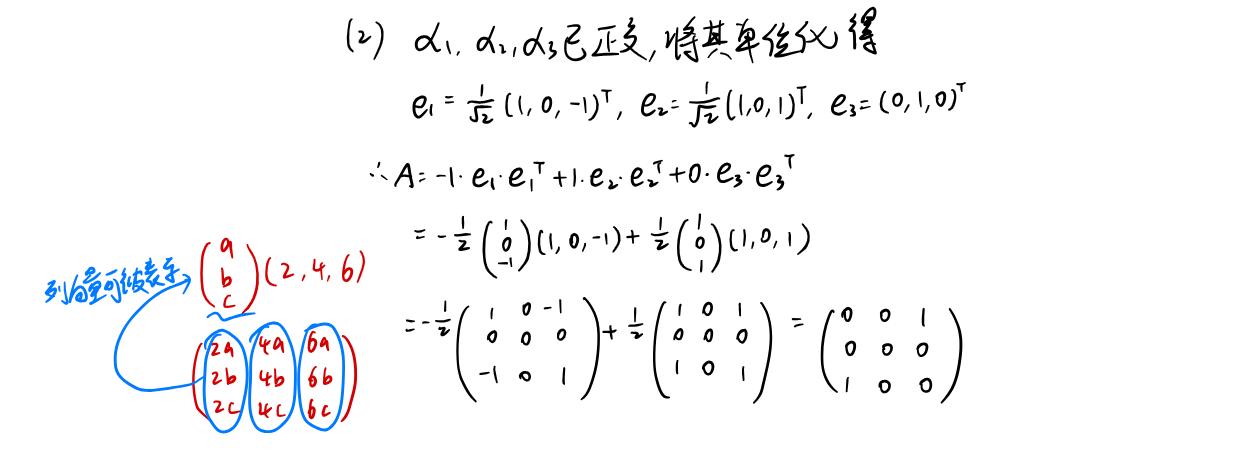 (2) α₁, α₂, α₃已正交,将其单位化得
e₁ = 1/√2 (1, 0, -1)ᵀ, e₂ = 1/√2 (1, 0, 1)ᵀ, e₃ = (0, 1, 0)ᵀ
∴ A = -1·e₁·e₁ᵀ + 1·e₂·e₂ᵀ + 0·e₃·e₃ᵀ
= -1/2 (1 0 -1) (1, 0, -1) + 1/2 (1 0 1) (1, 0, 1)
列向量可被表示
(a b c) (2, 4, 6)
= -1/2 (1 0 -1 0 0 0 -1 0 1) + 1/2 (1 0 1 0 0 0 1 0 1) = (0 0 1 0 0 0 1 0 0)
(2a 4a 6a
2b 4b 6b
2c 4c 6c)